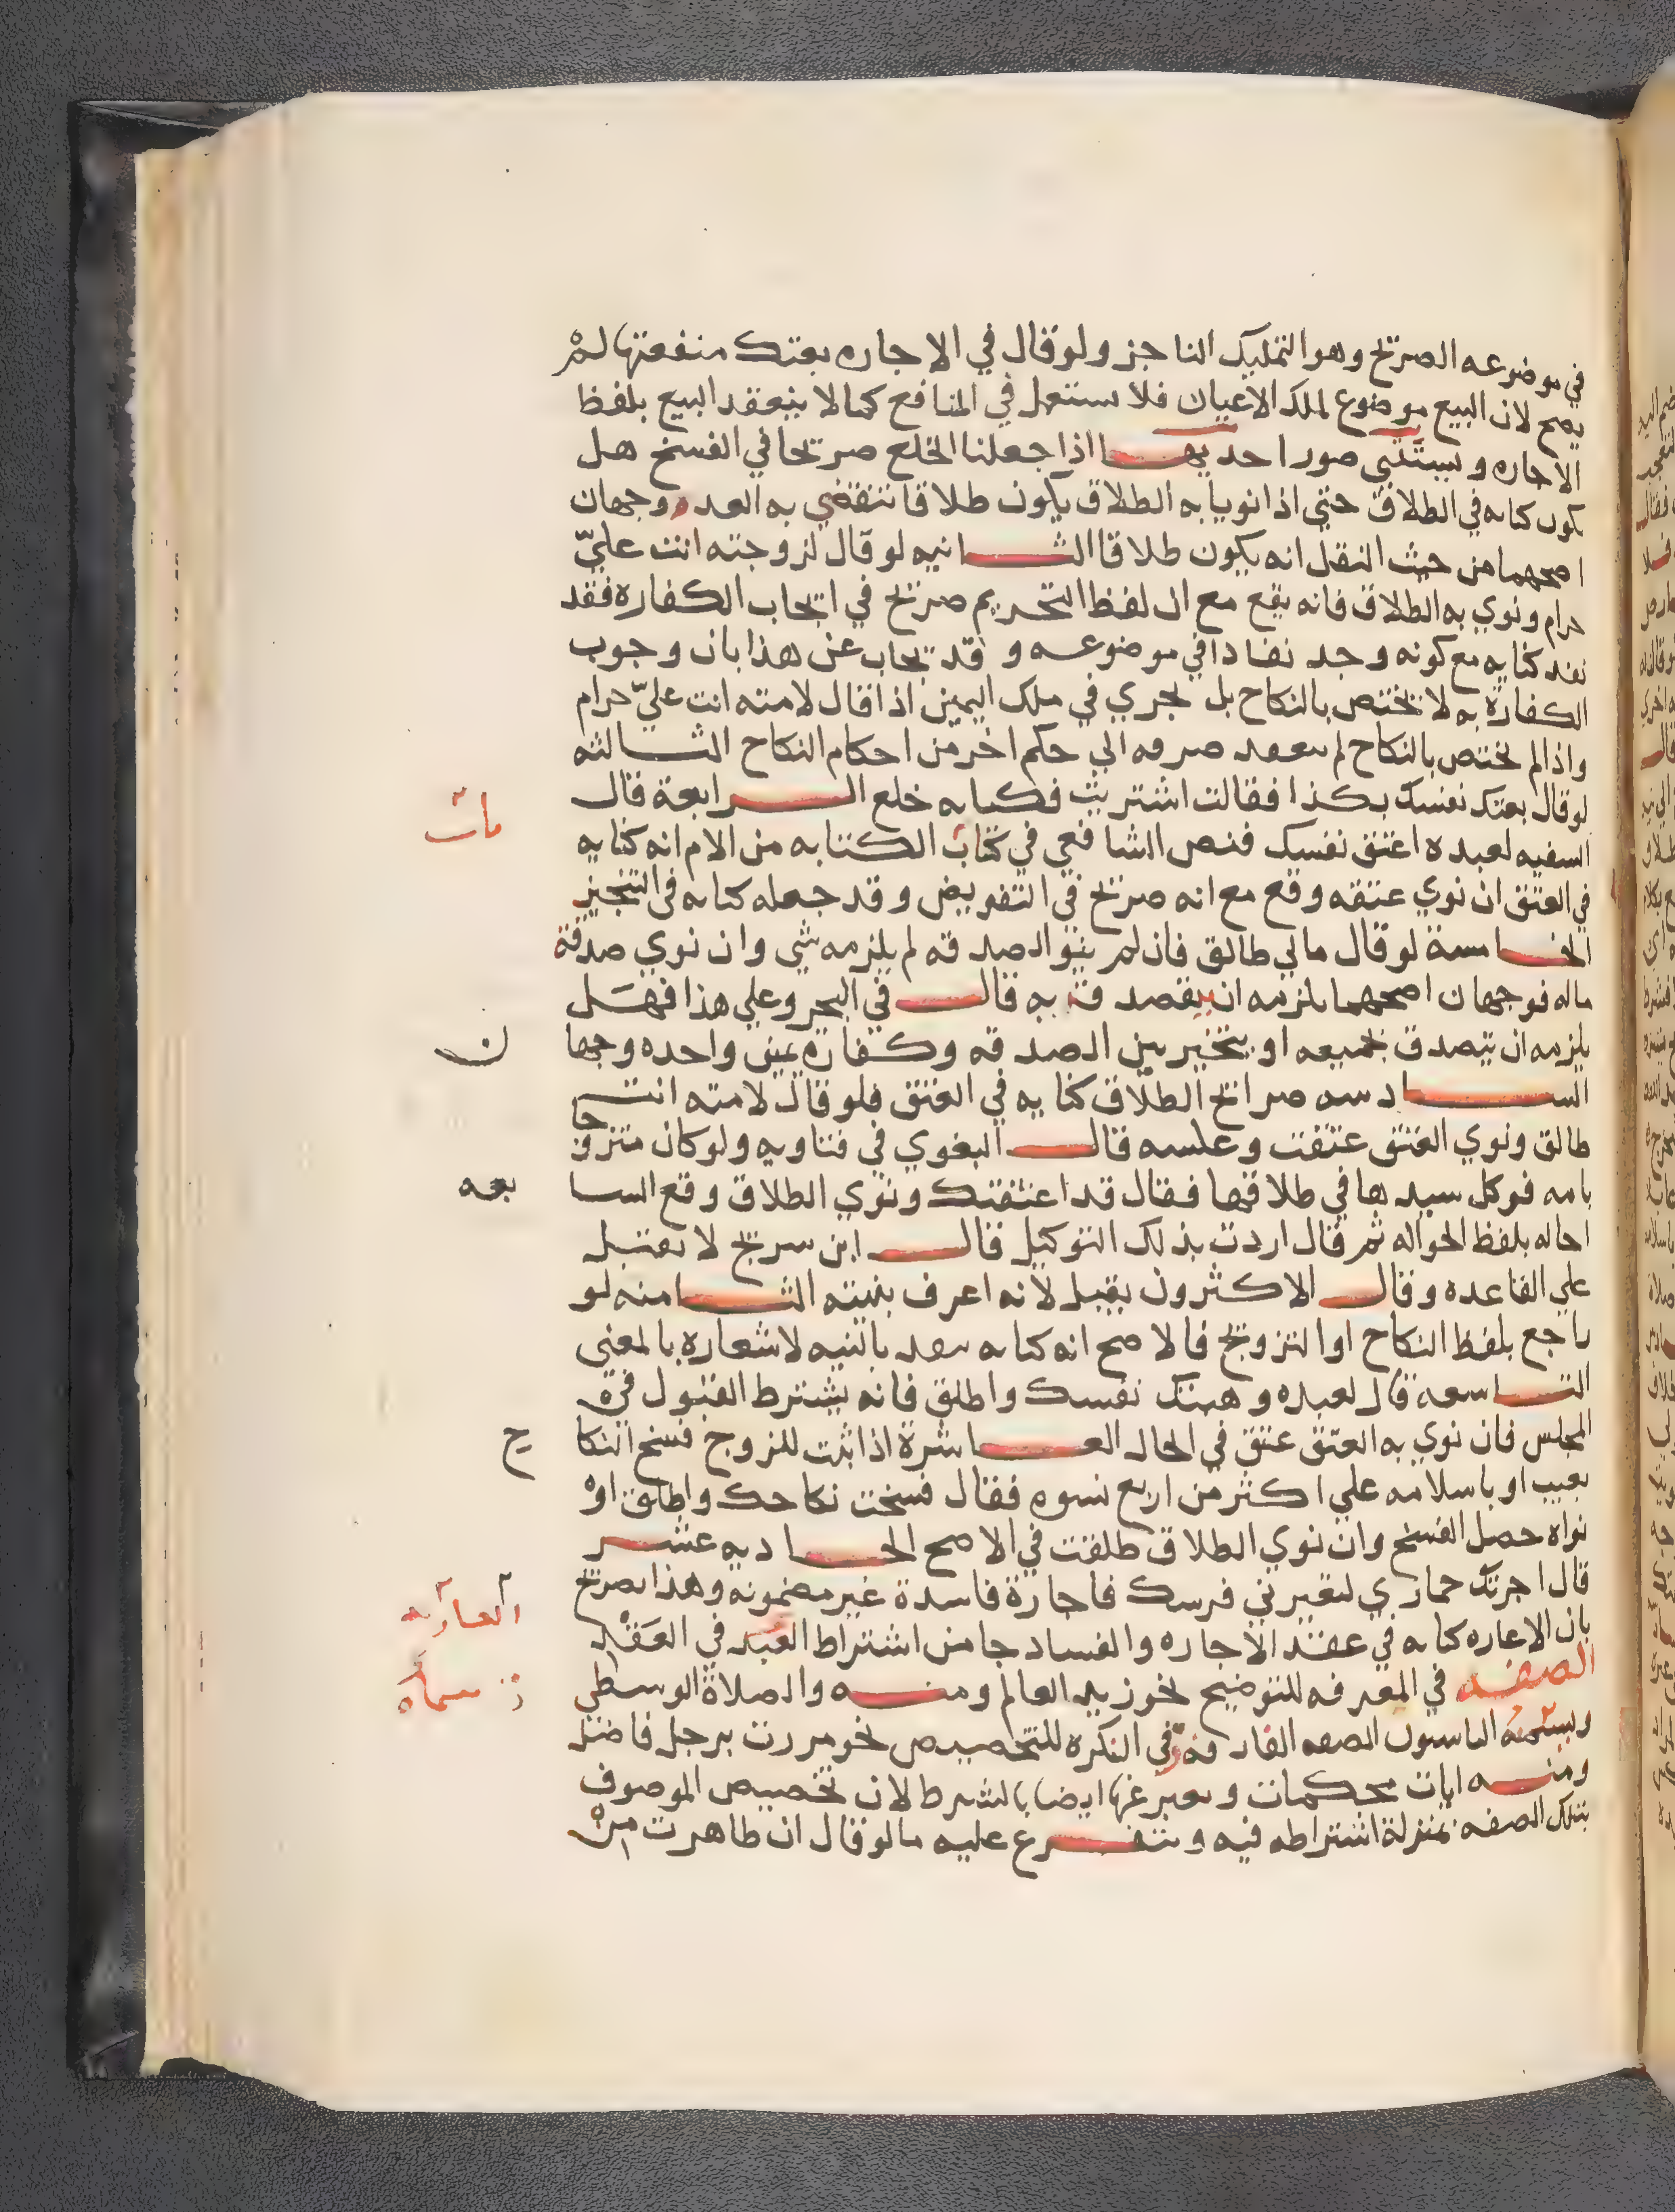 في موضوعه الصريح وهو التمليك الناجز ولو قال في الاجاره بعتك منفعتها لم
يصح لان البيع موضوع لملك الاعيان فلا يستعمل في المنافع كما لا ينعقد البيع بلفظ
الاجاره ويستثني صور احديها اذا جعلنا الخلع صريحا في الفسخ هل
يكون كنايه في الطلاق حتي اذا نويا به الطلاق يكون طلاقا تنقضي به العدد وجهان
اصحهما من حيث النقل انه يكون طلاقا الثانيه لو قال لزوجته انت عليّ
حرام ونوي به الطلاق فانه يقع مع ان لفظ التحريم صريح في ايجاب الكفاره فقد
نفد كنايه مع كونه وجد نفاذا في موضوعه وقد يجاب عن هذا بان وجوب
الكفارة به لا يختص بالنكاح بل يجري في ملك اليمين اذا قال لامته انت عليّ حرام
واذا لم يختص بالنكاح لم يبعد صرفه الي حكم اخر من احكام النكاح الثالثه
لو قال بعتك نفسك بكذا فقالت اشتريت فكنايه خلع الرابعة قال
السفيه لعبده اعتق نفسك فنص الشافعي في كتاب الكتابه من الام انه كنايه
في العتق ان نوي عتقه وقع مع انه صريح في التفويض وقد جعله كنايه في التنجيز
الخامسة لو قال مالي طالق فان لم ينو الصدقه لم يلزمه شي وان نوي صدقة
ماله فوجهان اصحهما يلزمه ان يتصدق به قال في البحر وعلي هذا فهل
يلزمه ان يتصدق بجميعه او يتخير بين الصدقه وكفارة يمين واحده وجها ن
السادسه صرائح الطلاق كنايه في العتق فلو قال لامته انت
طالق ونوي العتق عتقت وعكسه قال البغوي في فتاويه ولو كان متزوجا
بامه فوكل سيدها في طلاقها فقال قد اعتقتك ونوي الطلاق وقع السا بعه
احاله بلفظ الحواله ثم قال اردت بذلك التوكيل قال ابن سريج لا يقبل
علي القاعده وقال الاكثرون يقبل لانه اعرف بنيته الثامنه لو
راجع بلفظ النكاح او التزويج فالاصح انه كنايه تنفد بالنيه لاشعاره بالمعني
التاسعة قال لعبده وهبتك نفسك واطلق فانه يشترط القبول في
المجلس فان نوي به العتق عتق في الحال العاشرة اذا ثبت للزوج فسخ النكا ح
بعيب او باسلامه علي اكثر من اربع نسوه فقال فسخت نكاحك واطلق او
نواه حصل الفسخ وان نوي الطلاق طلقت في الاصح الحاديه عشر
قال اجرتك حماري لتعيرني فرسك فاجارة فاسدة غير مضمونه وهذا يصرح
بان الاعاره كنايه في عقد الاجاره والفساد جا من اشتراط العقد في العقد
الصفه في المعرفه للتوضيح نحو زيد العالم ومنه والصلاة الوسطي
ويسميه البيانيون الصفه الفارقة وفي النكره للتخصيص نحو مررت برجل فاضل
ومنه ايات محكمات ويعبر عنها ايضا بالشرط لان تخصيص الموصوف
بتلك الصفه بمنزلة اشتراطه فيه ويتفرع عليه ما لو قال ان ظاهرت من